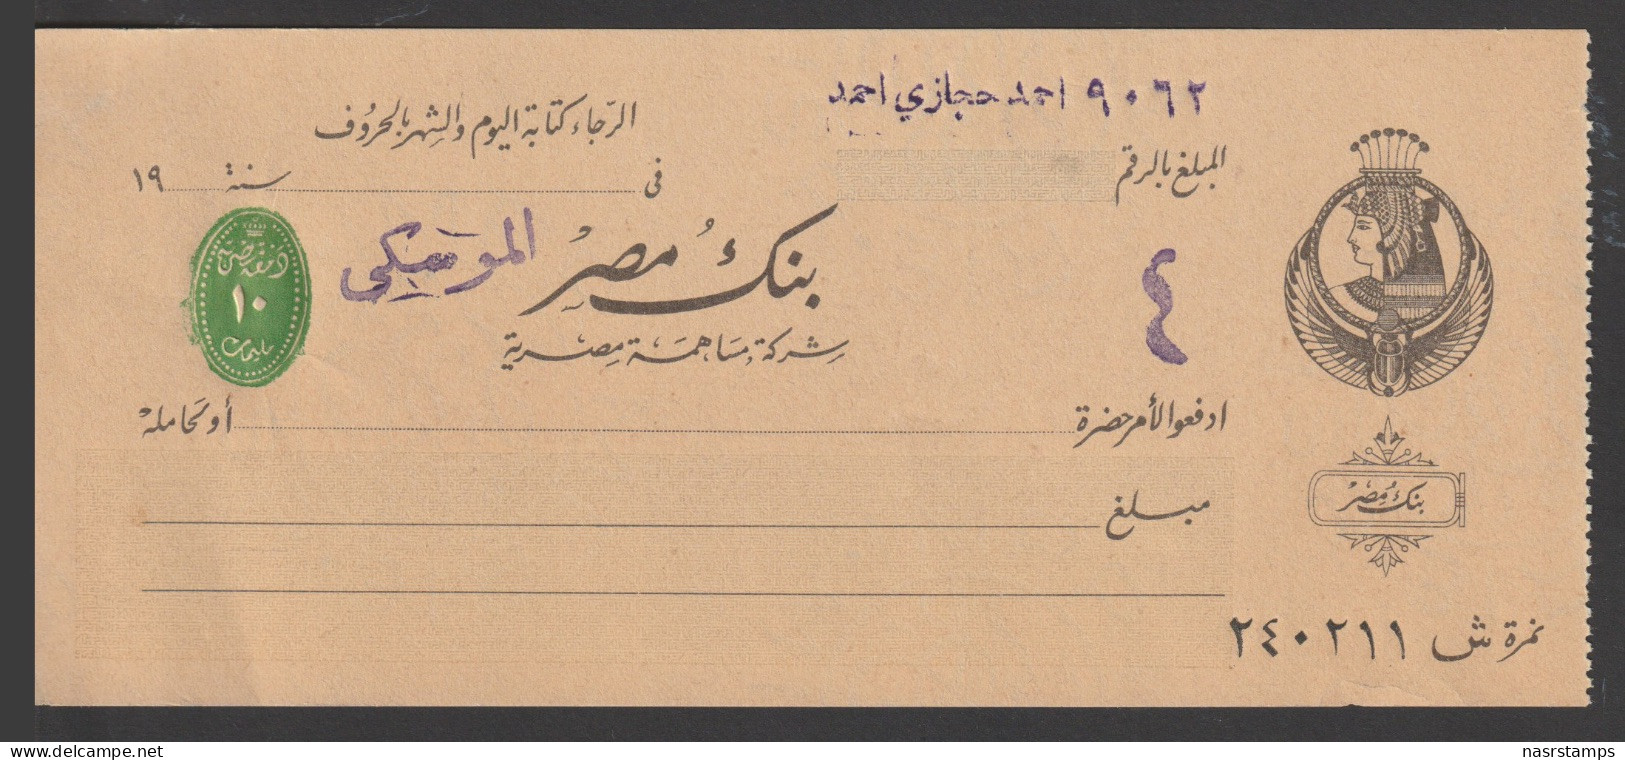 ٩٠٦٢ احمد حجازي احمد
الرجاء كتابة اليوم والشهر بالحروف
المبلغ بالرقم
في سنة ١٩
بنك مصر
الموسكى
٤
دمغة
١٠
مليمات
شركة مساهمة مصرية
ادفعوا لأمر حضرة أو لحامله
مبلغ
بنك مصر
نمرة ش ٢٤٠٢١١
www.delcampe.net
nasrstamps